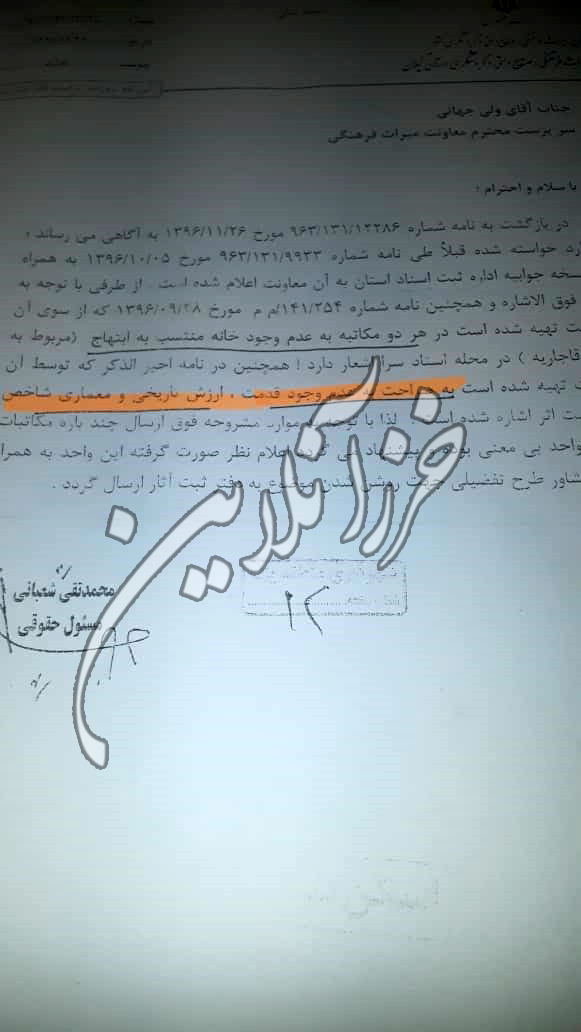 جناب آقای ولی جهانی
سرپرست محترم معاونت میراث فرهنگی
با سلام و احترام ؛
در بازگشت به نامه شماره ۹۶۳/۱۳۱/۱۲۲۸۶ مورخ ۱۳۹۶/۱۱/۲۶ به آگاهی می رساند ؛
خواسته شده قبلاً طی نامه شماره ۹۶۳/۱۳۱/۹۹۳۳ مورخ ۱۳۹۶/۱۰/۰۵ به همراه
سخه جوابیه اداره ثبت اسناد استان به آن معاونت اعلام شده است . از طرفی با توجه به
فوق الاشاره و همچنین نامه شماره ۱۴۱/۲۵۴/م م مورخ ۱۳۹۶/۰۹/۲۸ که از سوی آن
ت تهیه شده است در هر دو مکاتبه به عدم وجود خانه منتسب به ابتهاج (مربوط به
قاجاریه ) در محله استاد سرا اشعار دارد ! همچنین در نامه اخیر الذکر که توسط آن
تهیه شده است به صراحت به عدم وجود قدمت ، ارزش تاریخی و معماری شاخص
ت اثر اشاره شده است ! لذا با توجه به موارد مشروحه فوق ارسال چند باره مکاتبات
واحد بی معنی بوده و پیشنهاد می گردد اعلام نظر صورت گرفته این واحد به همرا
شاور طرح تفضیلی جهت روشن شدن موضوع به دفتر ثبت آثار ارسال گردد .
محمدتقی شعبانی
مسئول حقوقی
۱۲
فرزآنلاین